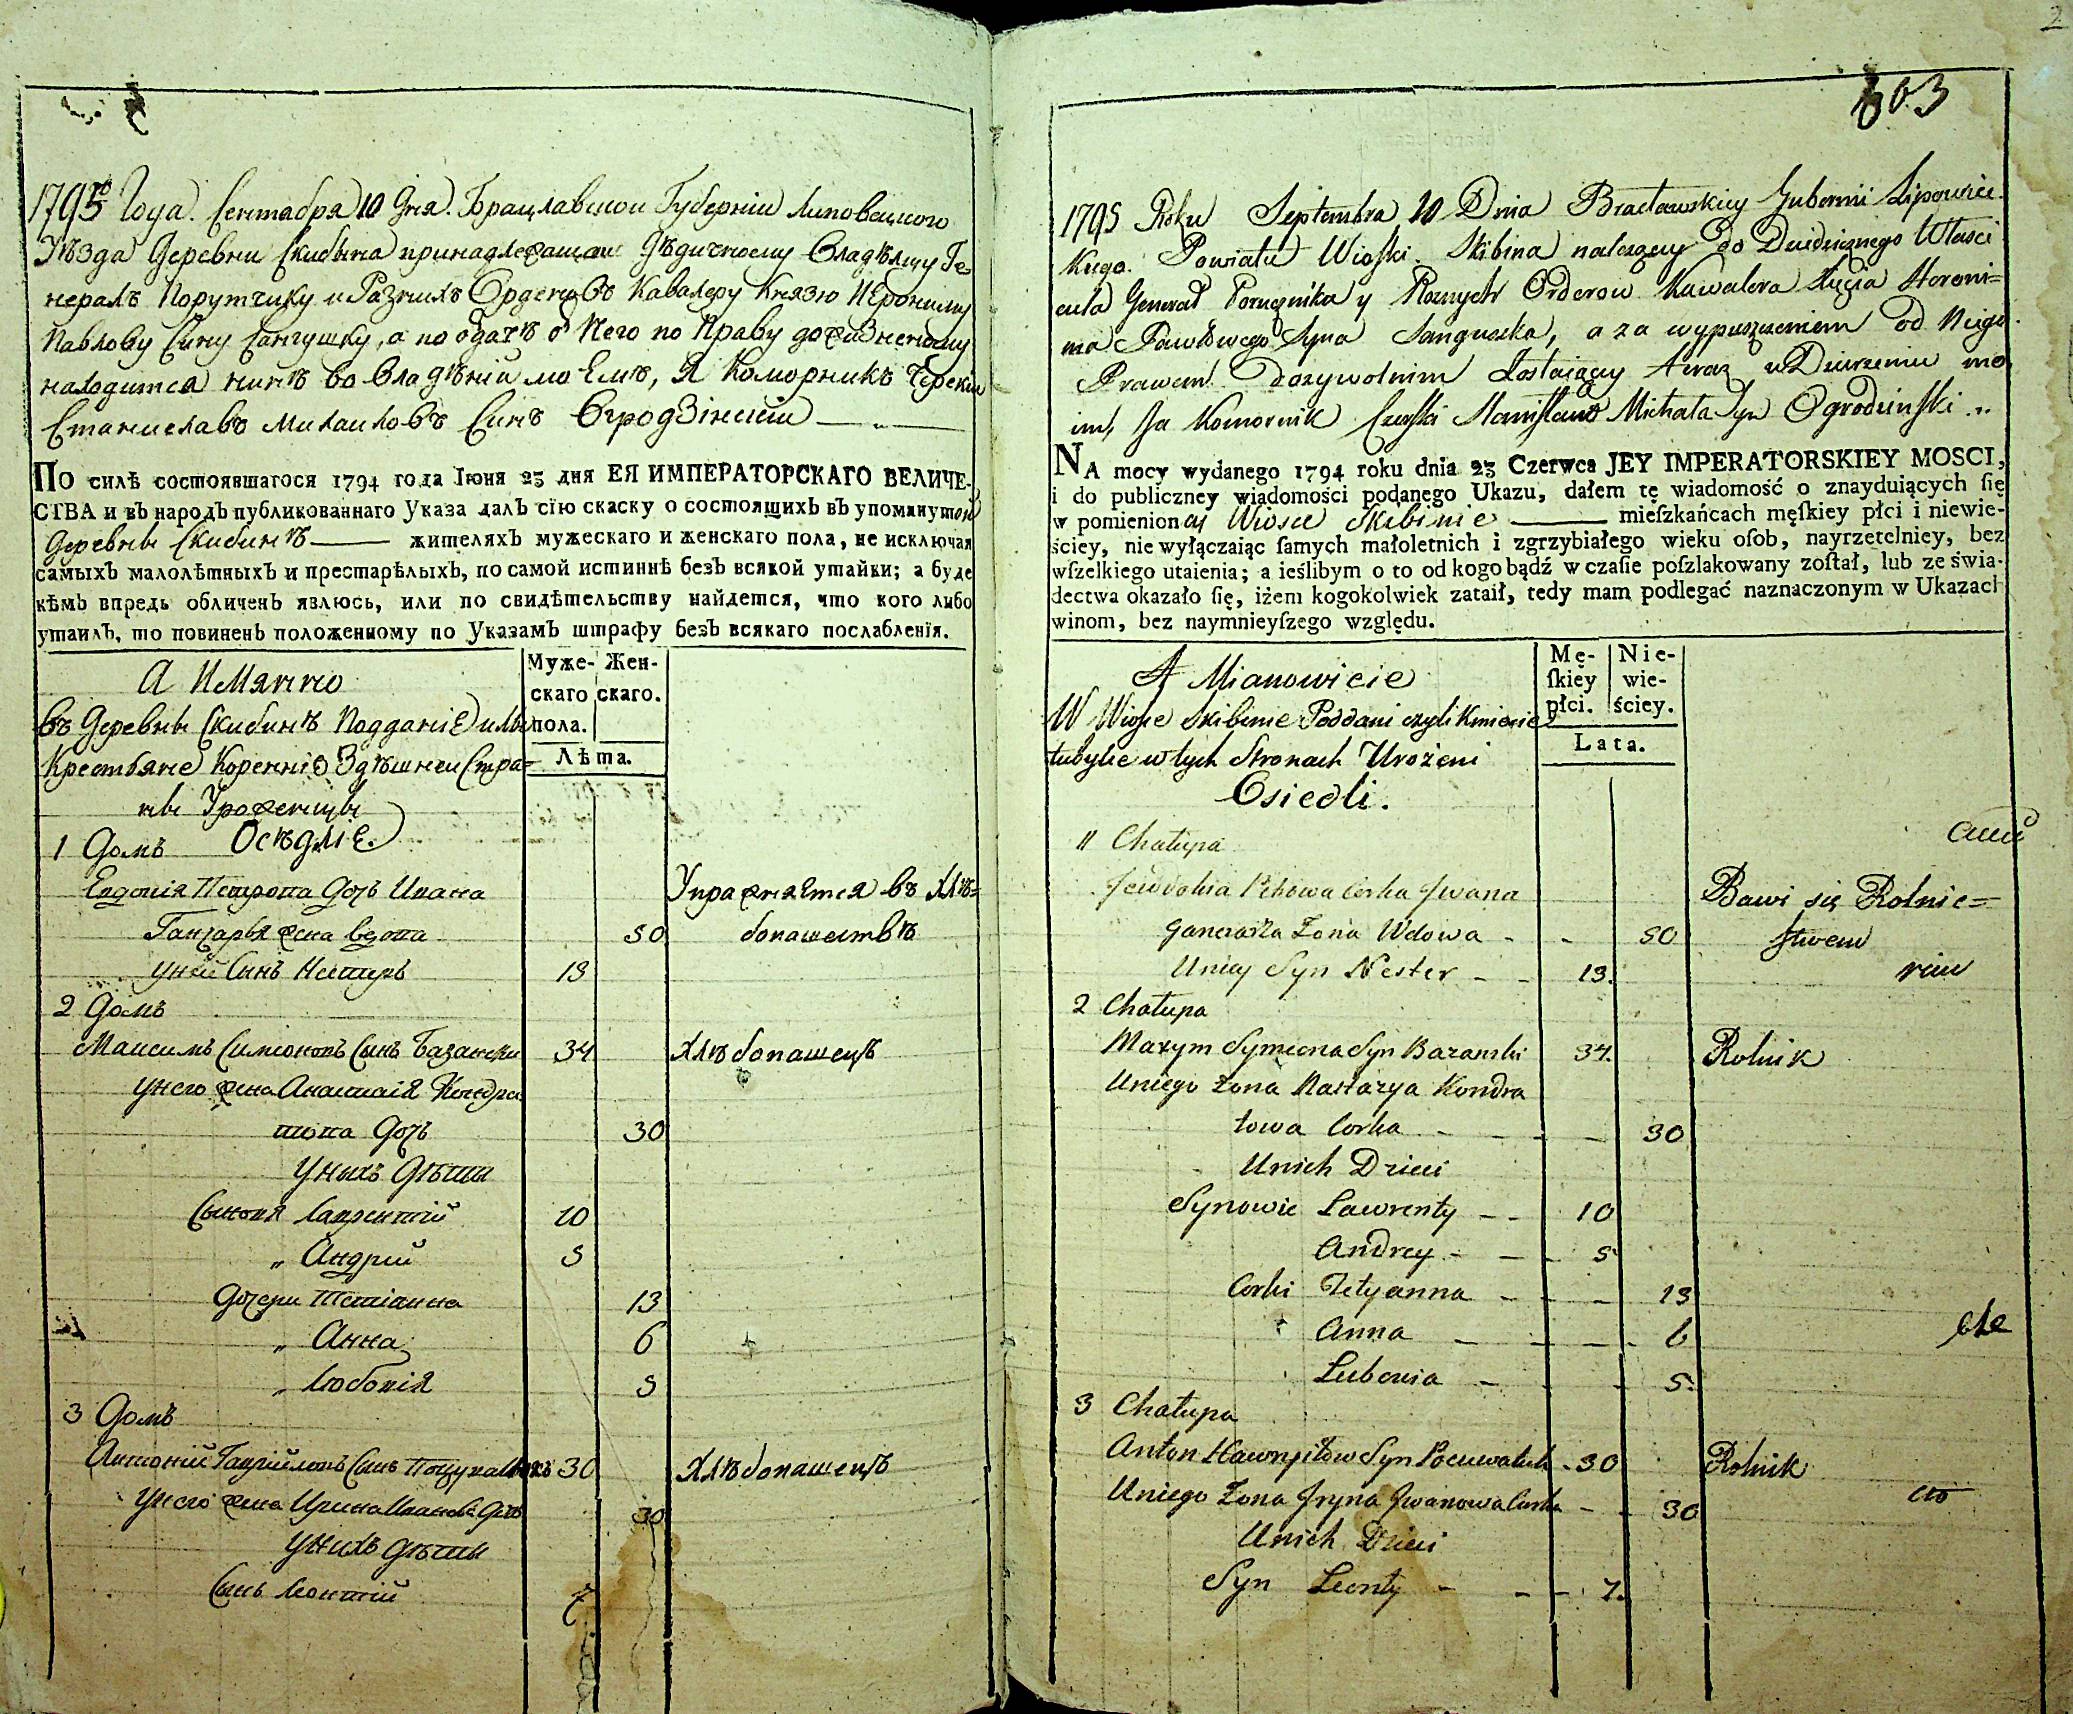 1795го Года Сентября 10 Дня. Брацлавской Губерніи Липовецкого
Уѣзда Деревни Скибина принадлежащои Дѣдичному Владѣлцу Ге-
нералъ Порутчику и Разнихъ Орденовъ Кавалеру Князю Іерониму
Павлову Сину Сангушку, а по одачѣ о Него по Праву дожизненому
находится нинѣ во владѣніи моемъ, Я Коморникъ Черскіи
Станиславъ Михаиловъ Синъ Огродзінскіи
ПО силѣ состоявшагося 1794 года Іюня 23 дня ЕЯ ИМПЕРАТОРСКАГО ВЕЛИЧЕ-
СТВА и въ народъ публикованнаго Указа далъ сїю скаску о состоящихъ въ упомянутой
Деревнѣ Скибинѣ жителяхъ мужескаго и женскаго пола, не исключая
самыхъ малолѣтныхъ и престарѣлыхъ, по самой истиннѣ безъ всякой утайки; а буде
кѣмъ впредь обличенъ явлюсь, или по свидѣтельству найдется, что кого либо
утаилъ, то повиненъ положенному по Указамъ штрафу безъ всякаго послабленїя.
А Имянно
Муже-скаго пола. Жен-скаго.
Лѣта.
Въ Деревнѣ Скибинѣ Подданіе или
Крестьяне Коренніе Здѣшнеи Стра-
ны Уроженцы
Осѣдліе
1 Домъ
Евдокія Петрова Дочь Ивана Упражняется въ Хлѣ-
Ганчаря жена вдова 50 бопашествѣ
у ней Синъ Нестеръ 13
2 Домъ
Максимъ Симіоновъ Сынъ Базански 34 Хлѣбопашецъ
У него жена Анастасія Кондра
това Дочь 30
У нихъ Дѣты
Сыновя Лаврентій 10
„ Андрій 5
Дочери Тетіанна 13
„ Анна 6
„ Любовія 5
3 Домъ
Антоній Гавріиловъ Сынъ 30 Хлѣбопашецъ
У него жена Ирина Иванова Дочь 30
У нихъ Дѣты
Сынъ Леонтій 7
2
603
1795 Roku Septembra 10 Dnia Bracławskiey Gubernii Lipowiec
kiego Powiatu Wioski Skibina należącey do Dziedzicznego Własci
ciela Generał Porucznika y Roznych Orderow Kawalera Xięcia Heroni=
ma Pawłowego Syna Sanguszka, a za wypuszczeniem od Niego
Prawem Dozywotnim Zostaiącey teraz w Dzierzeniu mo
im, Ja Komornik Czerski Stanisław Michała Syn Ogrodzinski
NA mocy wydanego 1794 roku dnia 23 Czerwca JEY IMPERATORSKIEY MOSCI,
i do publiczney wiadomości podanego Ukazu, dałem tę wiadomość o znayduiących ſię
w pomienionay Wiosce Skibinie mieſzkańcach męſkiey płci i niewie-
ściey, nie wyłączaiąc ſamych małoletnich i zgrzybiałego wieku oſob, nayrzetelniey, bez
wſzelkiego utaienia; a ieślibym o to od kogo bądź w czaſie poſzlakowany zoſtał, lub ze świa-
dectwa okazało ſię, iżem kogokolwiek zataił, tedy mam podlegać naznaczonym w Ukazach
winom, bez naymnieyſzego względu.
A Mianowicie
Mę-ſkiey płci. Nie-wie-ściey.
Lata.
W Wiosce Skibinie Poddani czyli Kmiecie
tubylce w tych Stronach Urożeni
Osiedli.
1 Chałupa
Jewdokia Petrowa Corka Jwana Bawi się Rolnic=
Ganczarza Zona Wdowa - - 50 stwem
Uniey Syn Nester - - 13.
2 Chałupa
Maxym Symeona Syn Bazanski 34. Rolnik
Uniego Zona Nastazya Kondra
towa Corka - - - 30
Unich Dzieci
Synowie Lawrenty - - 10
Andrey - - 5
Corki Tetyanna - - 13
Anna - - - 6
Lubowia - - - 5.
3 Chałupa
Anton Hawryiłow Syn - 30 Rolnik
Uniego Zona Jryna Jwanowa Corka - - 30
Unich Dzieci
Syn Leonty - - - 7.